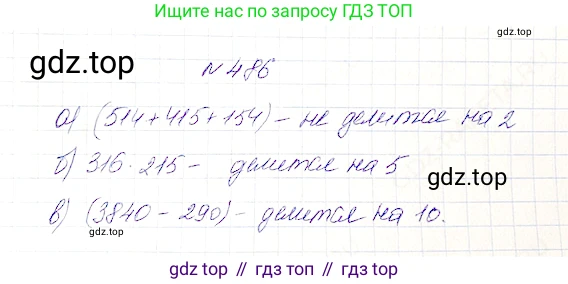 Ищите нас по запросу ГДЗ ТОП
gdz.top
№ 486
а) (514 + 415 + 154) - не делится на 2
б) 316 · 215 - делится на 5
gdz.top
в) (3840 - 290) - делится на 10.
gdz.top
gdz.top // гдз топ // гдз.топ